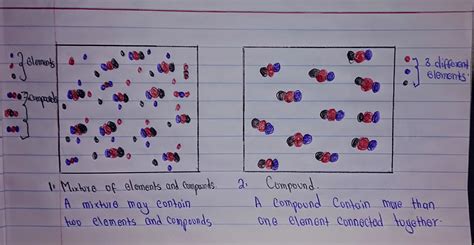 elements
3 different
elements
compounds
1. Mixture of elements and compounds
2. Compound.
A mixture may contain
two elements and compounds
A compound contain more than
one element connected together.